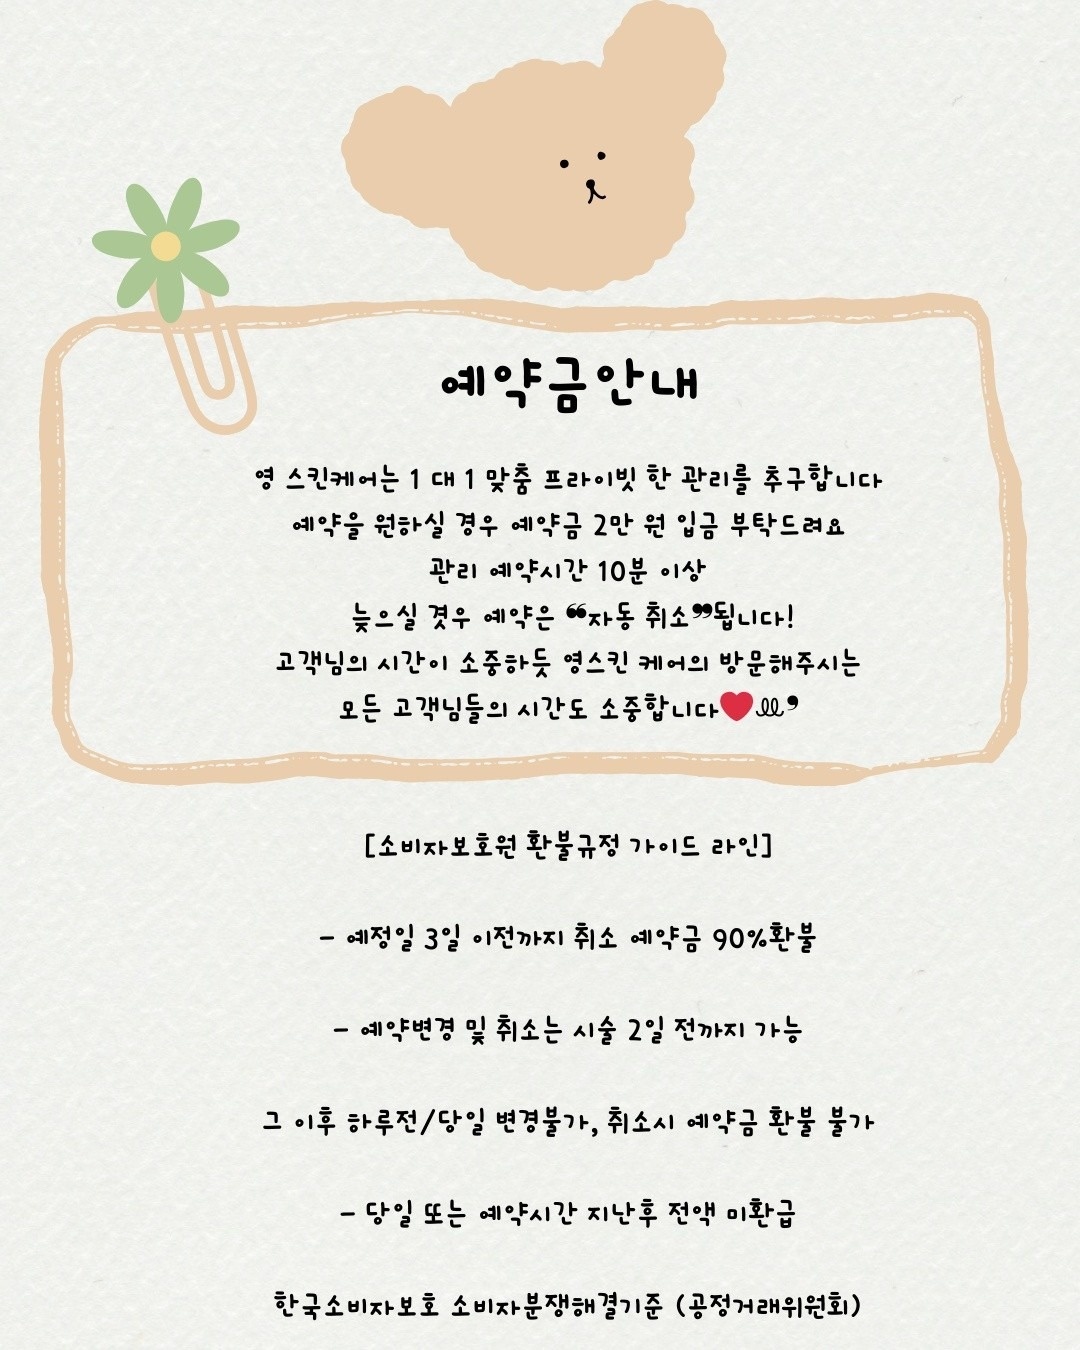 예약금안내
영 스킨케어는 1 대 1 맞춤 프라이빗 한 관리를 추구합니다
예약을 원하실 경우 예약금 2만 원 입금 부탁드려요
관리 예약시간 10분 이상
늦으실 겻우 예약은 ❝자동 취소❞됩니다!
고객님의 시간이 소중하듯 영스킨 케어의 방문해주시는
모든 고객님들의 시간도 소중합니다❤️ɷ❜
[소비자보호원 환불규정 가이드 라인]
- 예정일 3일 이전까지 취소 예약금 90%환불
- 예약변경 및 취소는 시술 2일 전까지 가능
그 이후 하루전/당일 변경불가, 취소시 예약금 환불 불가
- 당일 또는 예약시간 지난후 전액 미환급
한국소비자보호 소비자분쟁해결기준 (공정거래위원회)